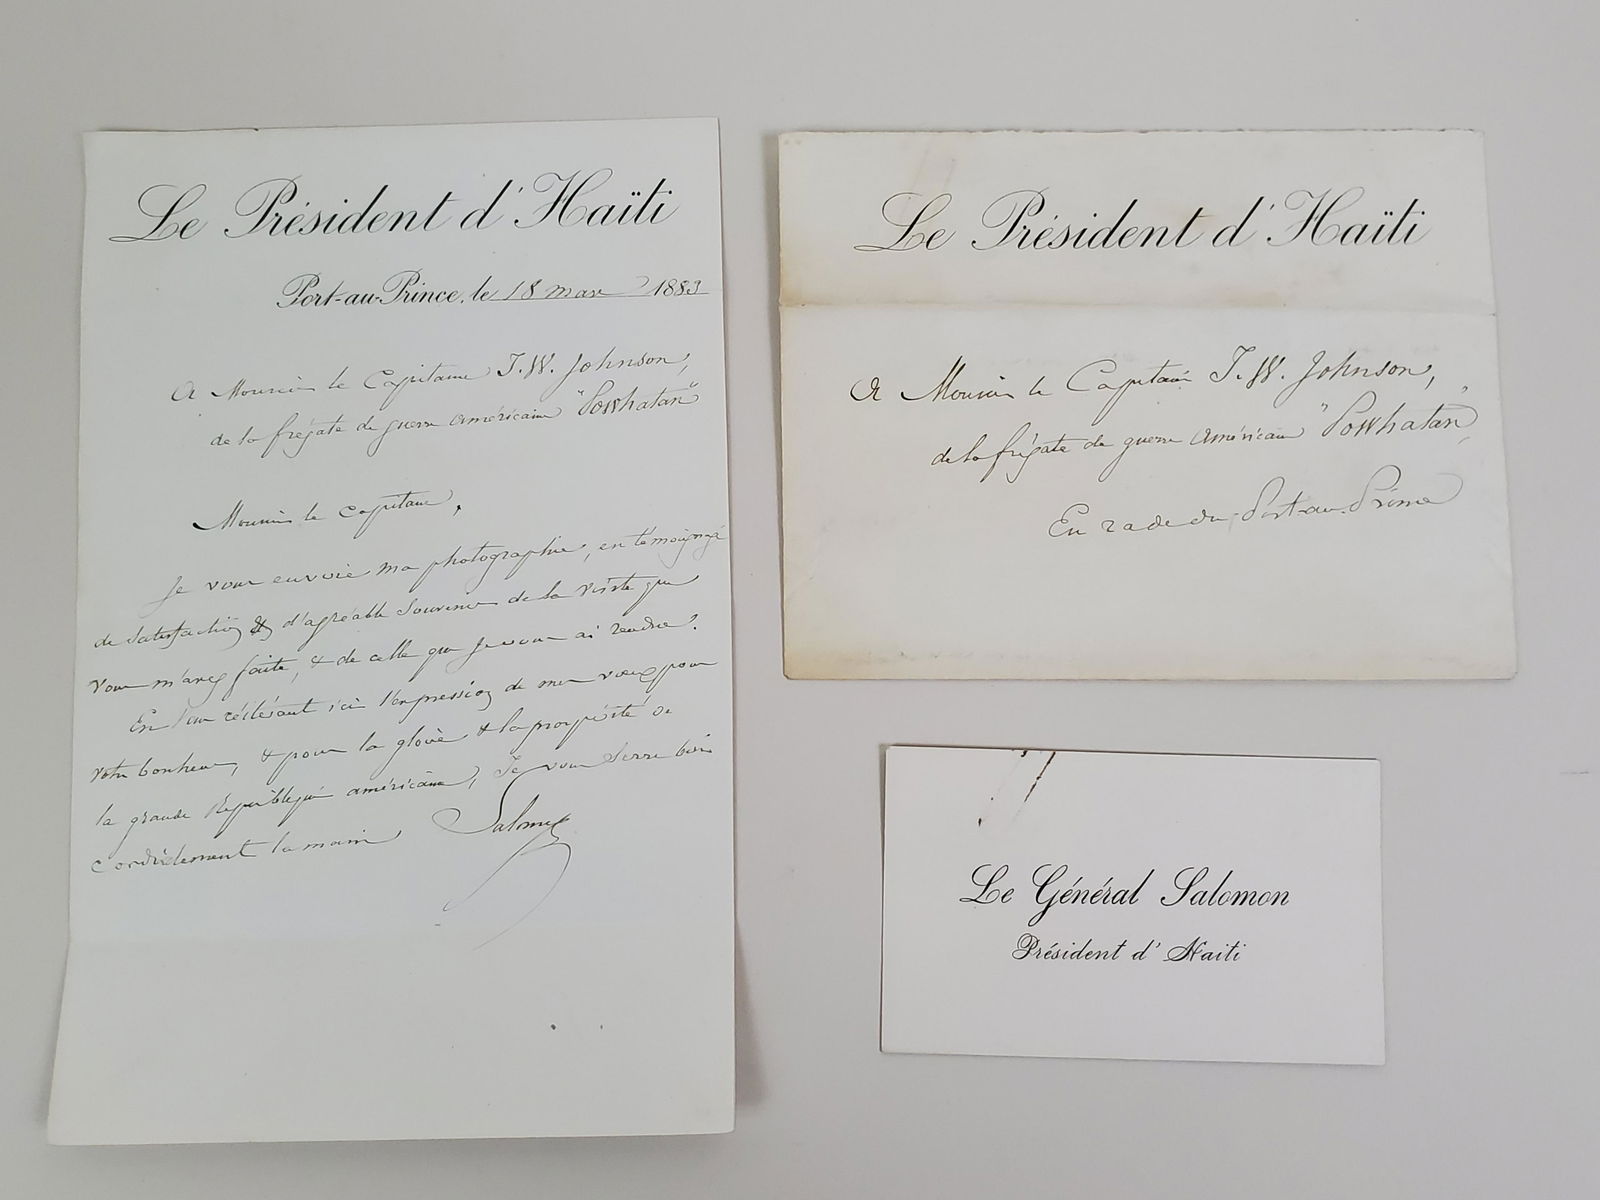 Le Président d'Haïti
Port-au-Prince, le 18 mars 1883
A Monsieur le Capitaine J. W. Johnson,
de la frégate de guerre américaine "Powhatan"
Monsieur le Capitaine,
Je vous envoie ma photographie, en témoignage
de satisfaction & d'agréable souvenir de la visite que
vous m'avez faite, & de celle que je vous ai rendue.
En vous réitérant ici l'expression de mes vœux pour
votre bonheur, & pour la gloire & la prospérité de
la grande République américaine, Je vous serre bien
cordialement la main
Salomon
Le Président d'Haïti
A Monsieur le Capitaine J. W. Johnson,
de la frégate de guerre américaine "Powhatan"
En rade du Port-au-Prince
Le Général Salomon
Président d'Haiti